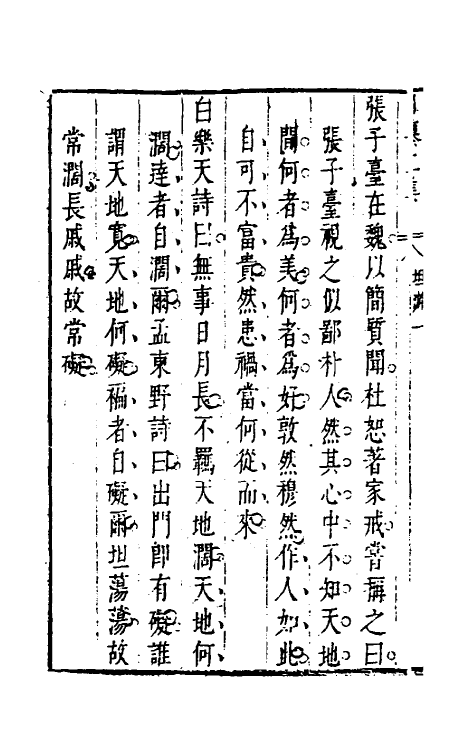 張子臺在魏以簡質聞杜恕著家戒嘗稱之曰
張子臺視之似鄙朴人然其心中不知天地
間何者為美何者為好敦然穆然作人如此
自可不富貴然患禍當何從而來
白樂天詩曰無事日月長不羈天地濶天地何
濶達者自濶爾孟東野詩曰出門即有礙誰
謂天地寬天地何礙褊者自礙爾坦蕩蕩故
常濶長戚戚故常礙